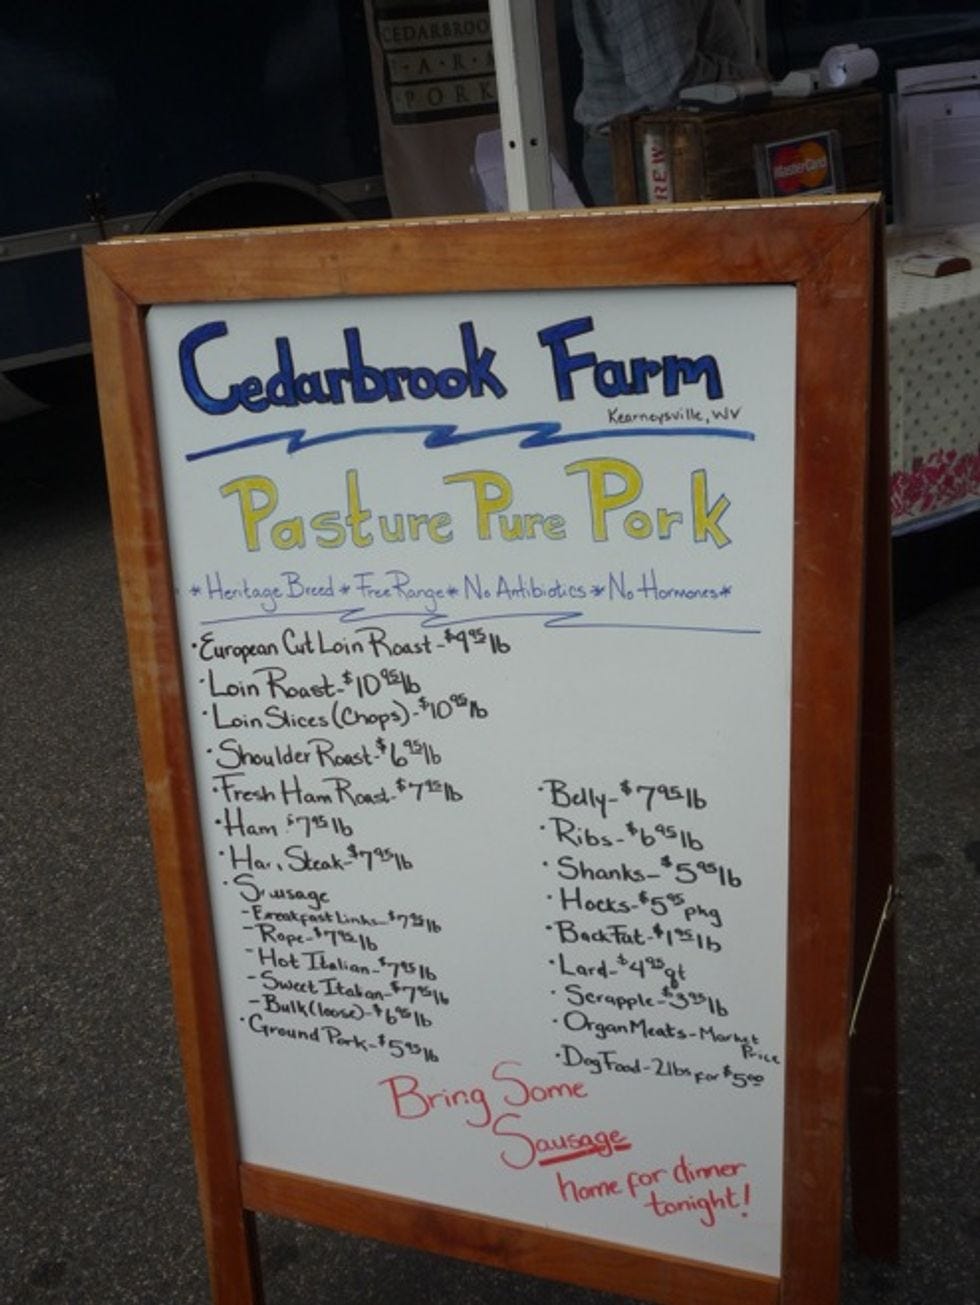 CEDARBROO
PORK
REW
MasterCard
Cedarbrook Farm
Kearneysville, WV
Pasture Pure Pork
*Heritage Breed * Free Range* No Antibiotics * No Hormones*
·European Cut Loin Roast-$9.95 lb
·Loin Roast-$10.95 lb
·Loin Slices (Chops)-$10.95 lb
·Shoulder Roast-$6.95 lb
·Fresh Ham Roast-$7.95 lb
·Ham $7.95 lb
·Ham Steak-$7.95 lb
·Sausage
-Breakfast Links-$7.95 lb
-Rope-$7.95 lb
-Hot Italian-$7.95 lb
-Sweet Italian-$7.95 lb
-Bulk (loose)-$6.95 lb
·Ground Pork-$5.95 lb
·Belly-$7.95 lb
·Ribs-$6.95 lb
·Shanks-$5.95 lb
·Hocks-$5.95 pkg
·Back Fat-$1.95 lb
·Lard-$4.95 qt
·Scrapple-$3.95 lb
·Organ Meats-Market
Price
·Dog Food-2lbs for $5.00
Bring Some
Sausage
home for dinner
tonight!